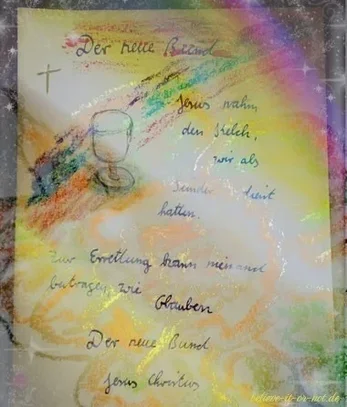 Der neue Bund
Jesus nahm
den Kelch,
wir als
Sünder
hatten.
Zur Errettung kann niemand
beitragen, wie
Glauben
Der neue Bund
Jesus Christus
believe-it-or-not.de